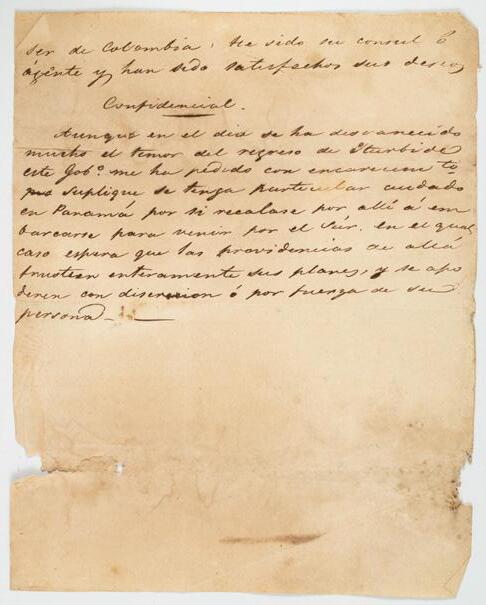 ser de Colombia, he sido su consul ó
ágente y han sido satisfechos sus deseos
Confidencial.
Aunque en el dia se ha desvanecido
mucho el temor del regreso de Iturbide
este Gobo. me ha pedido con encarecim to
suplique se tenga particular cuidado
en Panamá por si recalase por allá á em
barcarse para venir por el Súr. en el qual
caso espera que las providencias de allá
frustren enteramente sus planes, y se apo
deren con discrecion ó por fuerza de su
persona